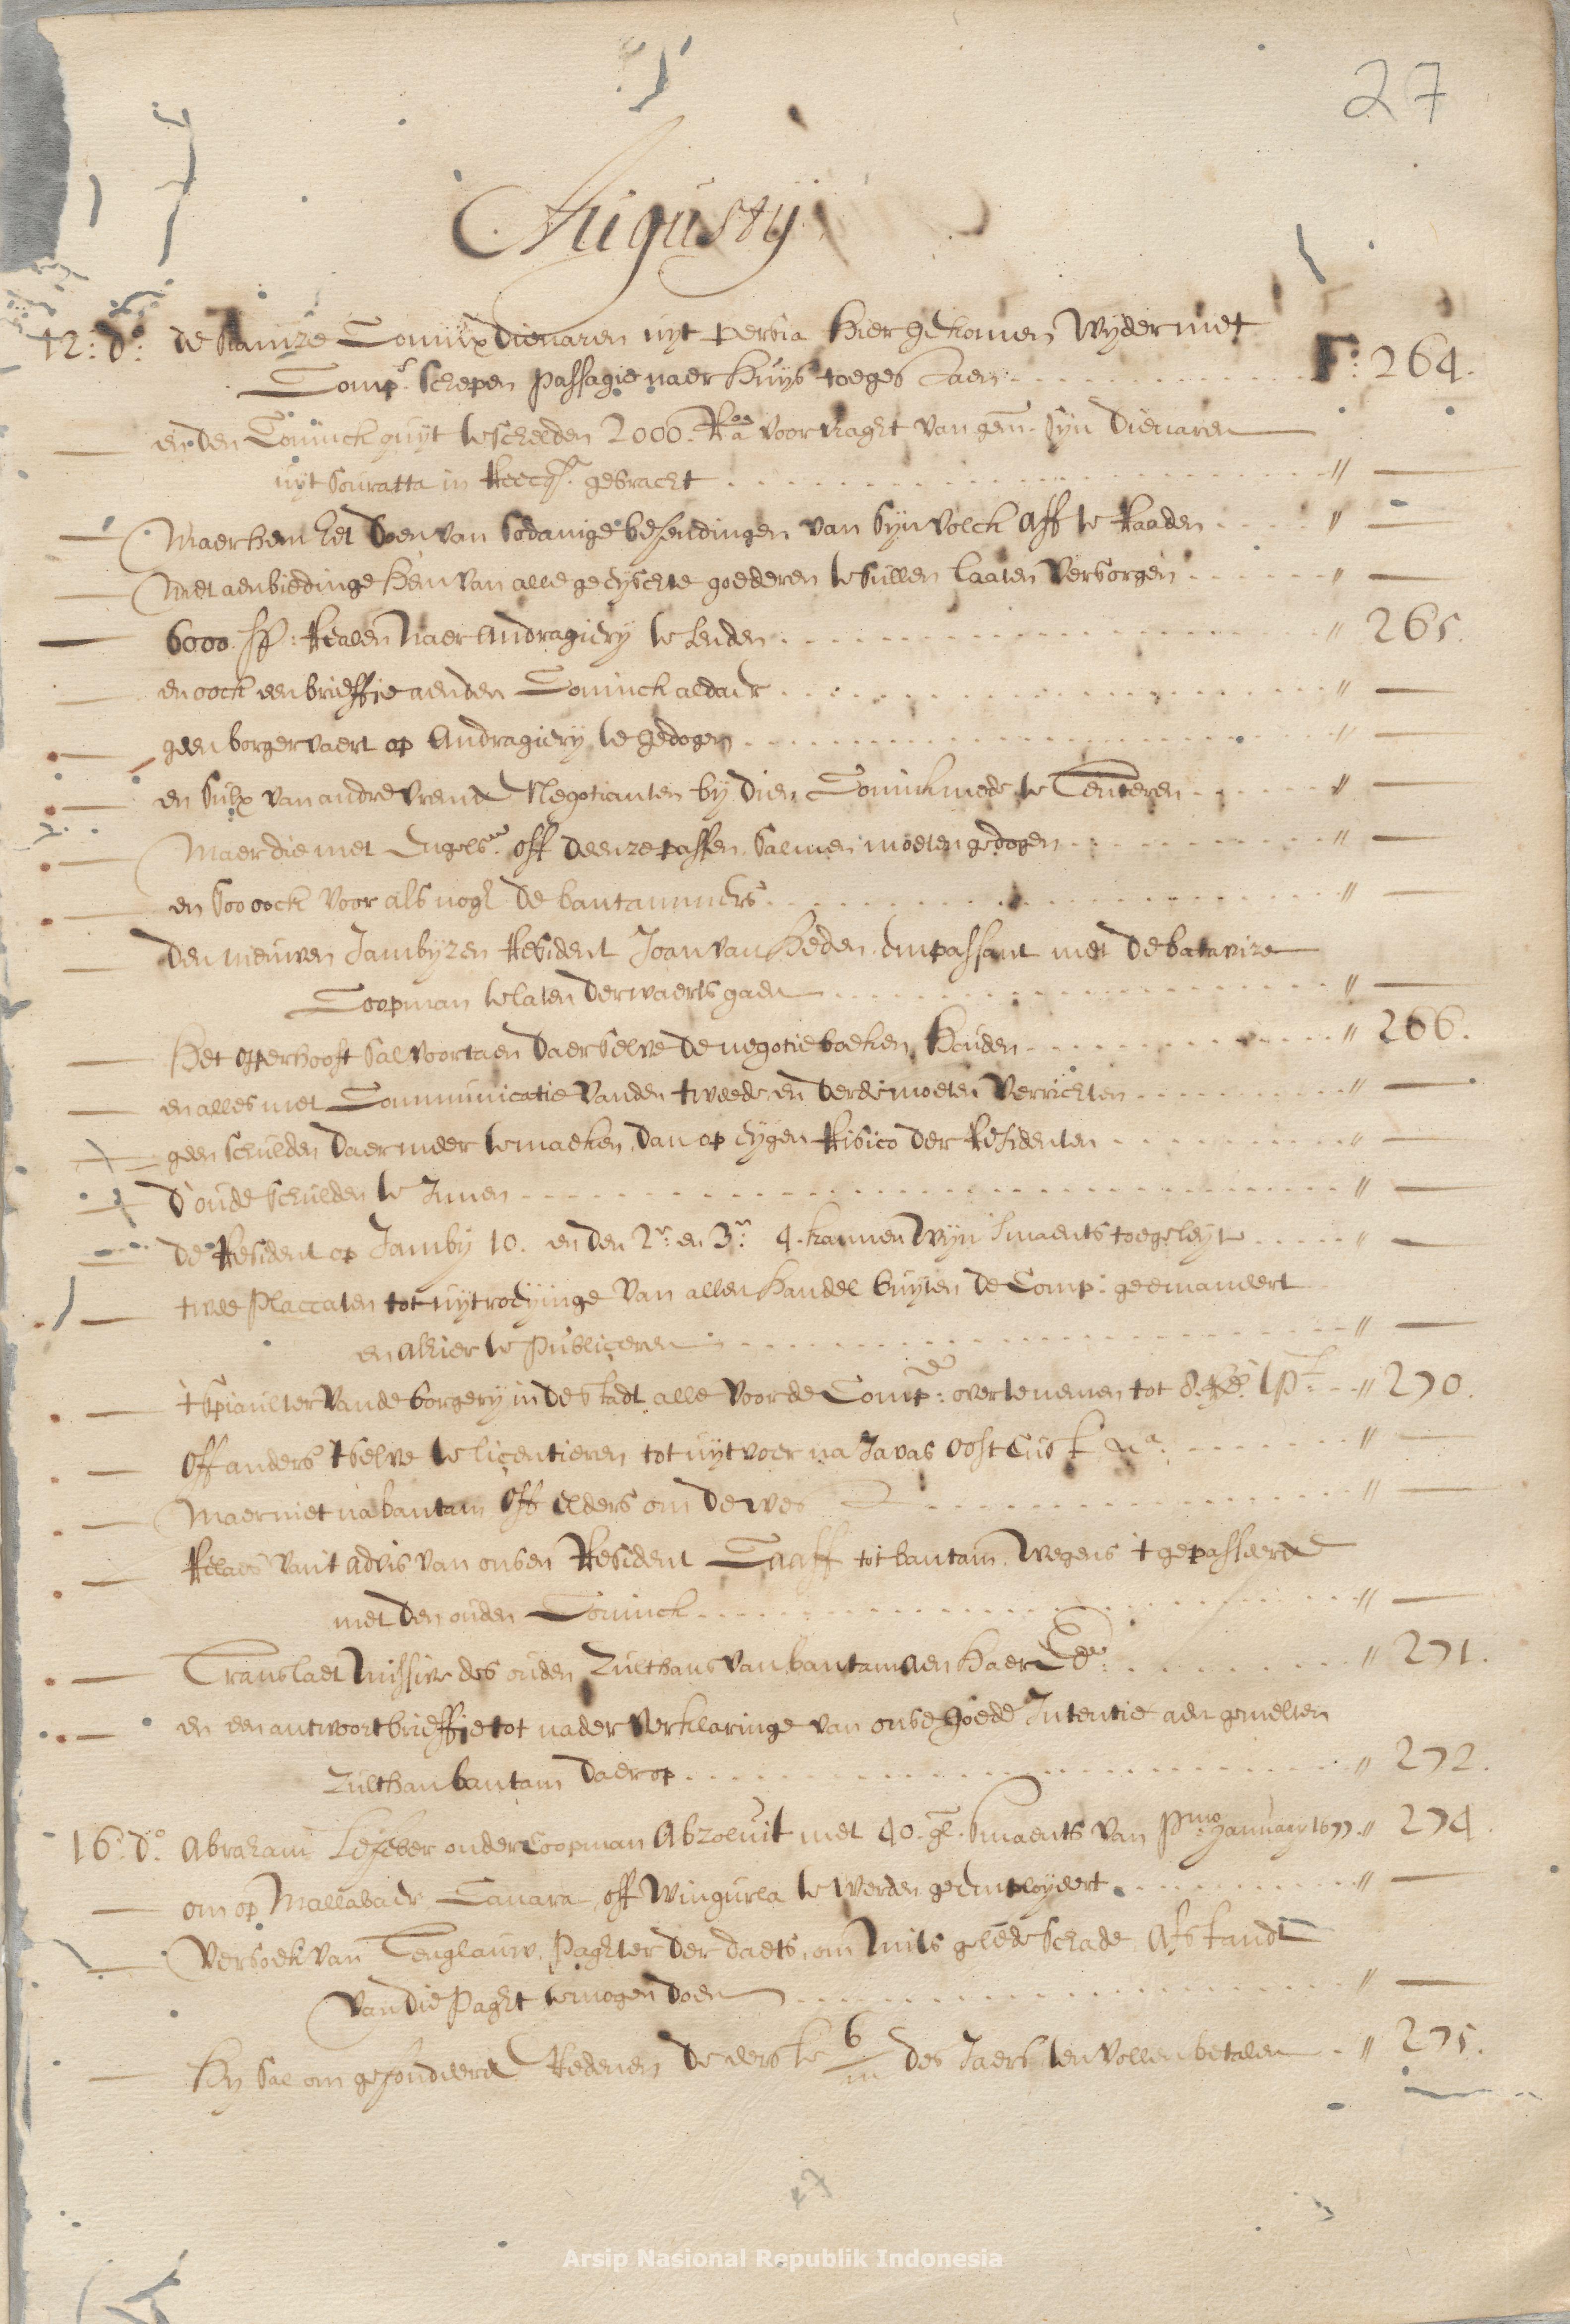 27
Augusty
12: do: de Siamze Coninx dienaren uyt persia hier gekomen wyder met
Comps. schepen passagie naer huys toegestaen F: 264.
en den Coninck quyt te schelden 2000. Ra voor vraght van gem: syn dienaren
uyt Souratta in gebracht " —
Maer hem het doen van sodanige besendingen van syn volck aff te raaden " —
Met aenbiedinge hem van alle geeyschte goederen te sullen laaten versorgen " —
6000 sp: Realen naer Andragiery te senden " 265.
en oock een brieffje aen den Coninck aldaer " —
geen borger vaert op Andragiery te gedogen " —
en sulx van andre vremde Negotianten by dien Coninck mede te Tenteren " —
Maer die met Engelse off deenze passen salmen moeten gedogen " —
en soo oock voor als nogh de bantammers " —
den nieuwen Jambyzen Resident Joan van Heden enpassant met de batavize
Coopman te laten derwaerts gaen " —
Het opperhooft sal voortaen daer selve de negotie boeken houden " 266.
en alles met Communicatie vanden tweede en derde moeten verrichten " —
geen schulden daer meer te maeken, dan op eygen Risico der Residenten " —
d'oude schulden te Innen " —
de Resident op Jamby 10. en den 2e: en 3e: 4. kannen Wyn 's maents toegeleyt " —
twee Placcaten tot uytroeyinge van allen handel buyten de Comp: geemaneert
en alhier te Publiceren " —
t' spiaulter vande borgery in de stadt alle voor de Comp: over te nemen tot 8. Rds. " 270.
Off anders t selve te licentieren tot uytvoer na Javas Oost Cust &a. " —
Maer niet na bantam off elders om de wes " —
Relaes van't advis van onsen Resident Caeff tot bantam, wegens t gepasseerde
met den ouden Coninck " —
Translaet Missive des ouden Zulthans van bantam aen haer Ede: " 271.
en een antwoort brieffje tot nader verklaringe van onse goede Intentie aen gemelten
Zulthan bantam daer op " 272.
16: do. Abraham Lefeber onder Coopman Abzoluit met 40. gl. smaents van Pmo January 1677. " 274.
om op Mallabaer Canara off Wingurla te werden geemployeert " —
Versoek van Tenglauw, Paghter der daets, om Mits gelede schade, Afstandt
van die Paght te mogen doen " —
Hy sal om gefondeerde Redenen de eerste 6/m des Jaers ten vollen betalen " 275.
27
Arsip Nasional Republik Indonesia